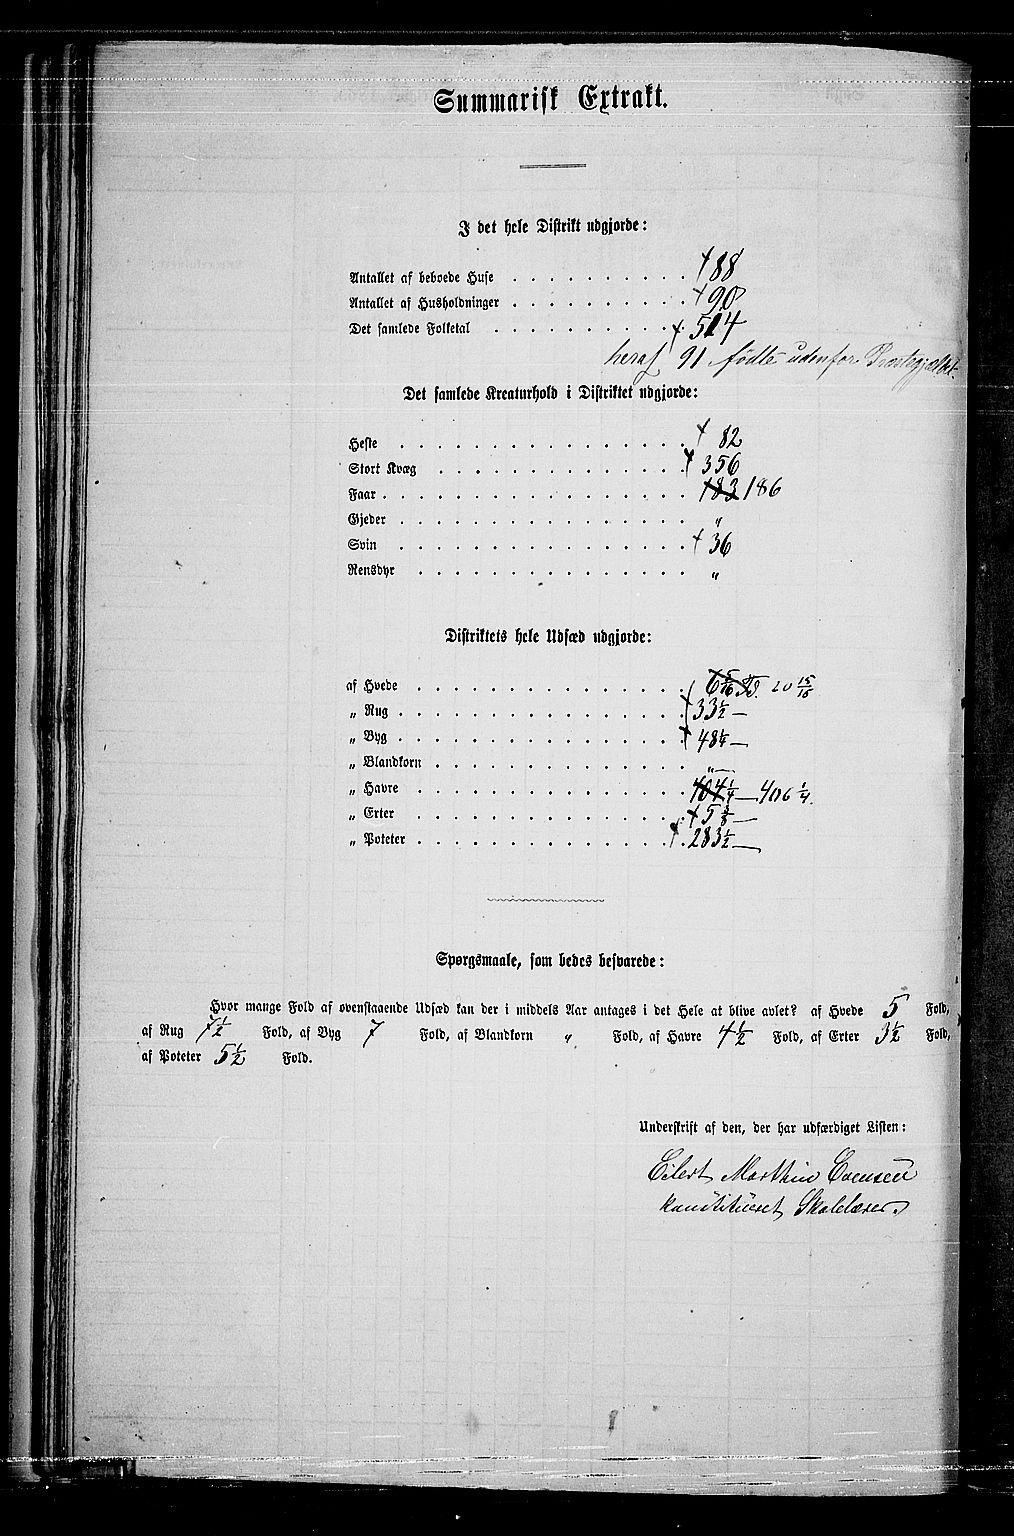 Summarisk Extrakt.
I det hele Distrikt udgjorde:
Antallet af beboede Huse . . . . . . . . . . 88
Antallet af Husholdninger . . . . . . . . . . 90
Det samlede Folketal . . . . . . . . . . . 514
heraf 91 fødte udenfor Præstegjældet.
Det samlede Kreaturhold i Distriktet udgjorde:
Heste . . . . . . . . . . . . . . . . 82
Stort Kvæg . . . . . . . . . . . . . . 356
Faar . . . . . . . . . . . . . . . . . 183 186
Gjeder . . . . . . . . . . . . . . . . "
Svin . . . . . . . . . . . . . . . . 36
Rensdyr . . . . . . . . . . . . . . . "
Distriktets hele Udsæd udgjorde:
af Hvede . . . . . . . . . . . . . . . 6 5/16 Td. 20 15/16
„ Rug . . . . . . . . . . . . . . . . 33 1/2 —
„ Byg . . . . . . . . . . . . . . . . 48 1/4 —
„ Blandkorn . . . . . . . . . . . . . . " —
„ Havre . . . . . . . . . . . . . . . 404 1/4 — 406 1/4.
„ Erter . . . . . . . . . . . . . . . 5 3/8 —
„ Poteter . . . . . . . . . . . . . . 283 1/2 —
Spørgsmaale, som bedes besvarede:
Hvor mange Fold af ovenstaaende Udsæd kan der i middels Aar antages i det Hele at blive avlet? af Hvede 5 Fold,
af Rug 7 1/2 Fold, af Byg 7 Fold, af Blandkorn " Fold, af Havre 4 1/2 Fold, af Erter 3 1/2 Fold,
af Poteter 5 1/2 Fold.
Underskrift af den, der har udfærdiget Listen:
Eilert Marthin Evensen
konstitueret Skolelærer.